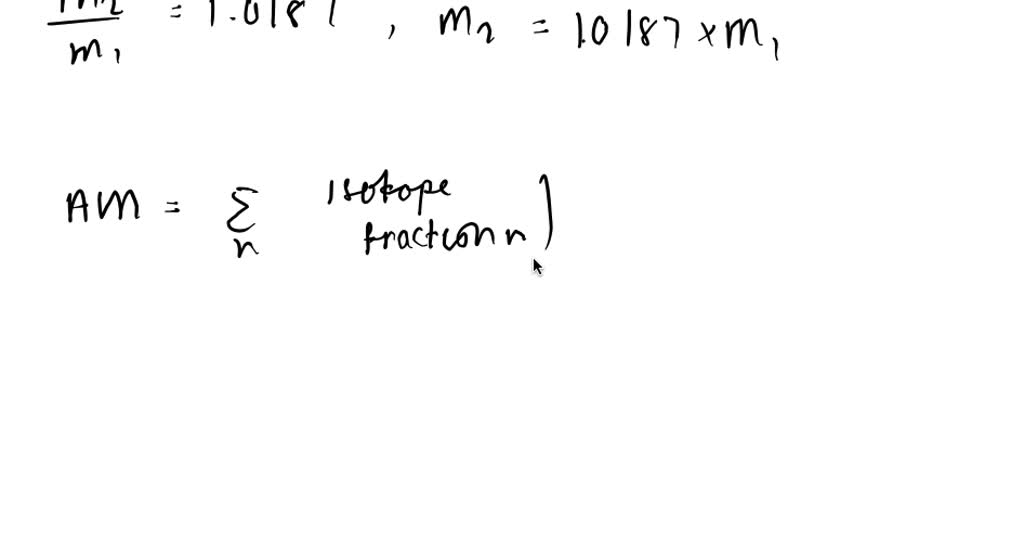 m2/m1 = 1.0187 , m2 = 1.0187 × m1
AM = Σn isotope
fraction n )